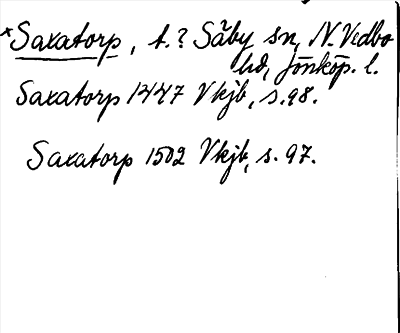 *Saxatorp, t.? Säby sn, N. Vedbo
hd, Jönköp. l.
Saxatorp 1447 Vkjb, s. 98.
Saxatorp 1502 Vkjb, s. 97.